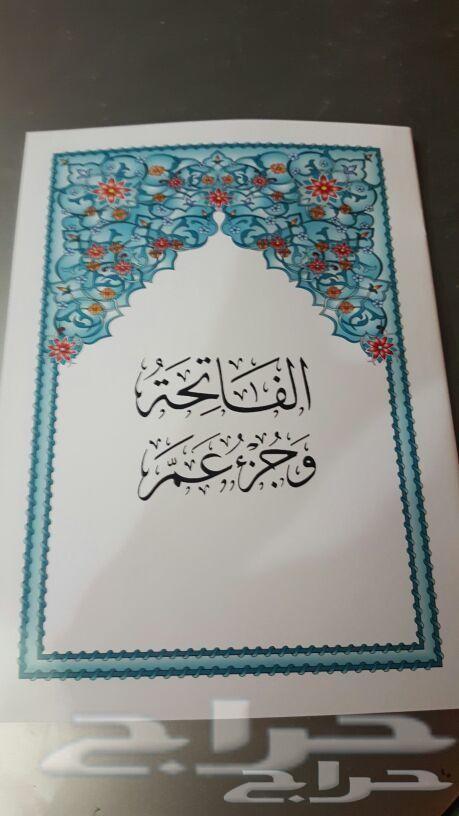 الفَاتِحَةُ
وَجُزْءُ عَمَّ
حراج
حراج